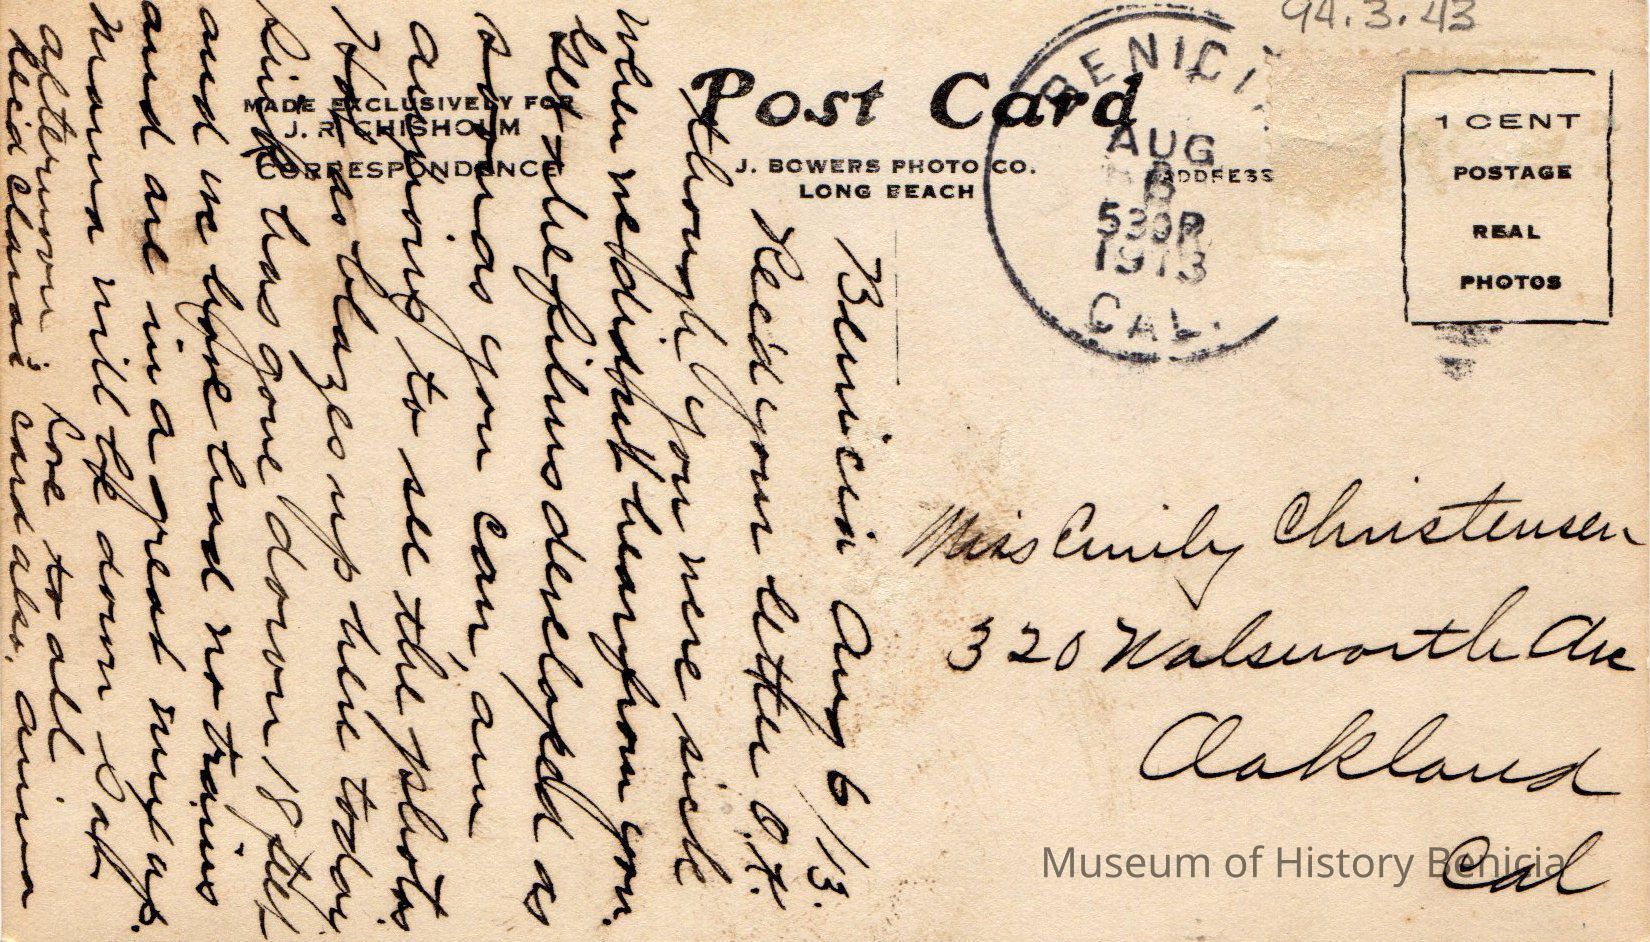 94.3.43
Post Card
MADE EXCLUSIVELY FOR
J. R. CHISHOLM
CORRESPONDENCE
J. BOWERS PHOTO CO.
LONG BEACH
ADDRESS
BENICIA
AUG
6
530P
1913
CAL.
1 CENT
POSTAGE
REAL
PHOTOS
Benicia Aug 6/13.
Rec'd your letter O.K.
thought you were sick
when we didn't hear from you.
Get the films developed as
soon as you can, am
anxious to see the photos
Hot as blazes up here today
Sink has gone down 18 feet
and we have had no trains
and are in a great mix up.
Mama will be down Sat
afternoon. Love to all
Rec'd Clara's card also. Anna
Miss Emily Christensen
320 Walsworth Ave
Oakland
Cal
Museum of History Benicia